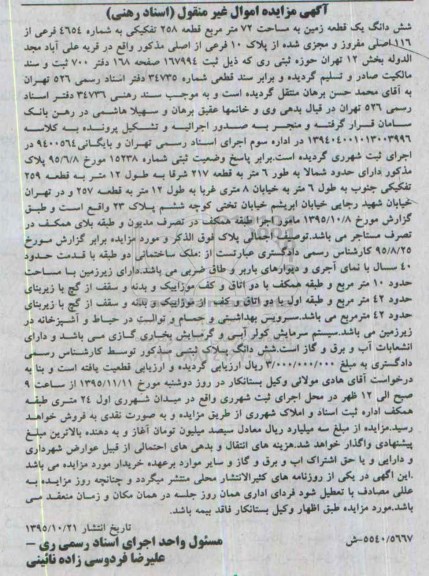 آگهی مزایده اموال غیر منقول (اسناد رهنی)
شش دانگ یک قطعه زمین به مساحت ۷۲ متر مربع قطعه ۲۵۸ تفکیکی به شماره ۴۶۵۴ فرعی از
۱۱۶ اصلی مفروز و مجزی شده از پلاک ۱۰ فرعی از اصلی مذکور واقع در قریه علی آباد مجد
الدوله بخش ۱۲ تهران حوزه ثبتی ری که ذیل ثبت ۱۶۷۹۹۴ صفحه ۱۶۸ دفتر ۷۰۰ ثبت و سند
مالکیت صادر و تسلیم گردیده و برابر سند قطعی شماره ۳۴۷۳۵ دفتر اسناد رسمی ۵۲۶ تهران
به آقای محمد حسن برهان منتقل گردیده است و به موجب سند رهنی ۳۴۷۳۶ دفتر اسناد
رسمی ۵۲۶ تهران در قبال بدهی وی و خانمها عقیق برهان و سهیلا هاشمی در رهن بانک
سامان قرار گرفته و منجر به صدور اجرائیه و تشکیل پرونده به کلاسه
۱۳۹۴۰۴۰۰۱۰۱۳۰۰۳۹۹۶ در اداره سوم اجرای اسناد رسمی تهران و بایگانی ۹۴۰۰۵۶۴ در
اجرای ثبت شهرری گردیده است.برابر پاسخ وضعیت ثبتی شماره ۱۵۲۳۸ مورخ ۹۵/۶/۸ پلاک
مذکور دارای حدود شمالا به طور ۶ متر به قطعه ۲۱۷ شرقا به طول ۱۲ متر به قطعه ۲۵۹
تفکیکی جنوب به طول ۶ متر به خیابان ۸ متری غربا به طول ۱۲ متر به قطعه ۲۵۷ و در تهران
خیابان شهید رجایی خیابان ابریشم خیابان تختی کوچه ششم پلاک ۲۳ واقع است و طبق
گزارش مورخ ۱۳۹۵/۱۰/۸ مامور اجرا طبقه همکف در تصرف مدیون و طبقه بلای همکف در
تصرف مستاجر می باشد.توصیف اجمالی پلاک فوق الذکر و مورد مزایده برابر گزارش مورخ
۹۵/۸/۲۵ کارشناس رسمی دادگستری عبارتست از :ملک ساختمانی دو طبقه با قدمت حدود
۴۰ سال با نمای آجری و دیوارهای باربر و طاق ضربی می باشد.دارای زیرزمین با مساحت
حدود ۱۰ متر مربع و طبقه همکف با دو اتاق و کف موزاییک و بدنه و سقف از گچ با زیربنای
حدود ۴۲ متر مربع و طبقه اول با دو اتاق و کف از موزاییک و بدنه و سقف از گچ با زیربنای
حدود ۴۲ مترمربع می باشد.سرویس بهداشتی و حمام و توالت در حیاط و آشپزخانه در
زیرزمین می باشد.سیتم سرمایش کولر آبی و گرمایش بخاری گازی می باشد و دارای
انشعابات آب و برق و گاز است.شش دانگ پلاک ثبتی مذکور توسط کارشناس رسمی
دادگستری به مبلغ ۳/۰۰۰/۰۰۰/۰۰۰ ریال ارزیابی گردیده و ارزیابی قطعیت یافته است و بنا به
درخواست آقای هادی مولائی وکیل بستانکار در روز دوشنبه مورخ ۱۳۹۵/۱۱/۱۱ از ساعت ۹
صبح الی ۱۲ ظهر در محل اجرای ثبت شهرری واقع در میدان شهرری اول ۲۴ متری طبقه
همکف اداره ثبت اسناد و املاک شهرری از طریق مزایده و به صورت نقدی به فروش خواهد
رسید.مزایده از مبلغ سه میلیارد ریال معادل سیصد میلیون تومان آغاز و به دهنده بالاترین مبلغ
پیشنهادی واگذار خواهد شد.هزینه های انتقال و بدهی های احتمالی از قبیل عوارض شهرداری
و دارایی و یا حق اشتراک اب و برق و گاز و سایر موارد برعهده خریدار مورد مزایده می باشد
.این آگهی در یکی از روزنامه های کثیرالانتشار محلی منتشر میگردد و چنانچه روز مزایده به
عللی مصادف با تعطیل شود فردای اداری همان روز جلسه در همان مکان و زمان منعقد می
باشد.مورد مزایده طبق اظهار وکیل بستانکار فاقد بیمه باشد.
تاریخ انتشار ۱۳۹۵/۱۰/۲۱
۵۵۴۰/۵۶۶۷-ش
مسئول واحد اجرای اسناد رسمی ری –
علیرضا فردوسی زاده نائینی